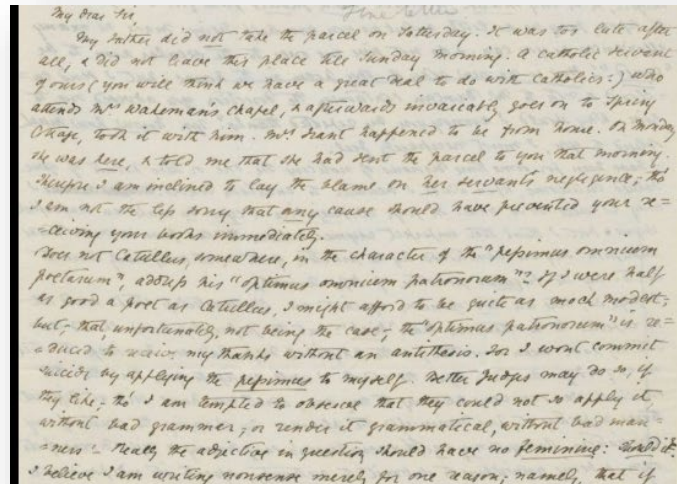 My dear Sir,
My Father did not take the parcel on Saturday. It was too late after
all, & did not leave this place till Sunday morning. A catholic servant
of ours (you will think we have a great deal to do with catholics:) who
attends Mrs Wakeman's chapel, & afterwards invariably goes on to Spring
Grove, took it with him. Mrs Grant happened to be from home. On Monday
she was here, & told me that she had sent the parcel to you that morning.
Therefore I am inclined to lay the blame on her servant's negligence; tho'
I am not the less sorry that any cause should have prevented your re=
=ceiving your books immediately.
Does not Catullus, somewhere, in the character of the "pessimus omnium
poetarum", address his "optimus omnium patronorum"? If I were half
as good a poet as Catullus, I might afford to be quite as much modest;
but, that, unfortunately, not being the case, the "optimus patronorum" is re=
=duced to receive my thanks without an antithesis. For I wont commit
suicide by applying the pessimus to myself. Better Judges may do so, if
they like; tho' I am tempted to observe that they could not so apply it
without bad grammar, or render it grammatical, without bad man=
=ners - Really the adjective in question should have no feminine: should it?
I believe I am writing nonsense merely for one reason; namely, that if